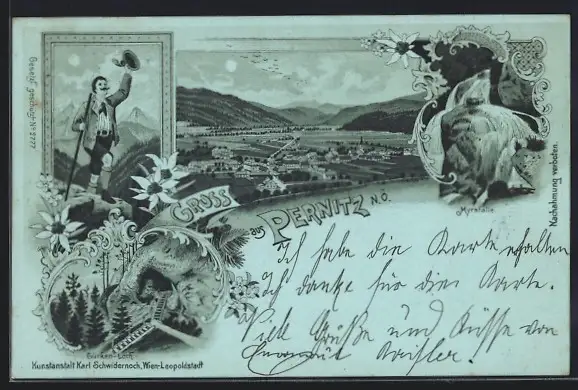 Gesetzl. geschützt No 2777
GRUSS
aus PERNITZ N.Ö.
Myrafälle
Nachahmung verboten.
Ich habe die Karte erhalten
Ich danke für die Karte.
Viele Grüße und Küsse von
Kunstanstalt Karl Schwidernoch, Wien-Leopoldstadt